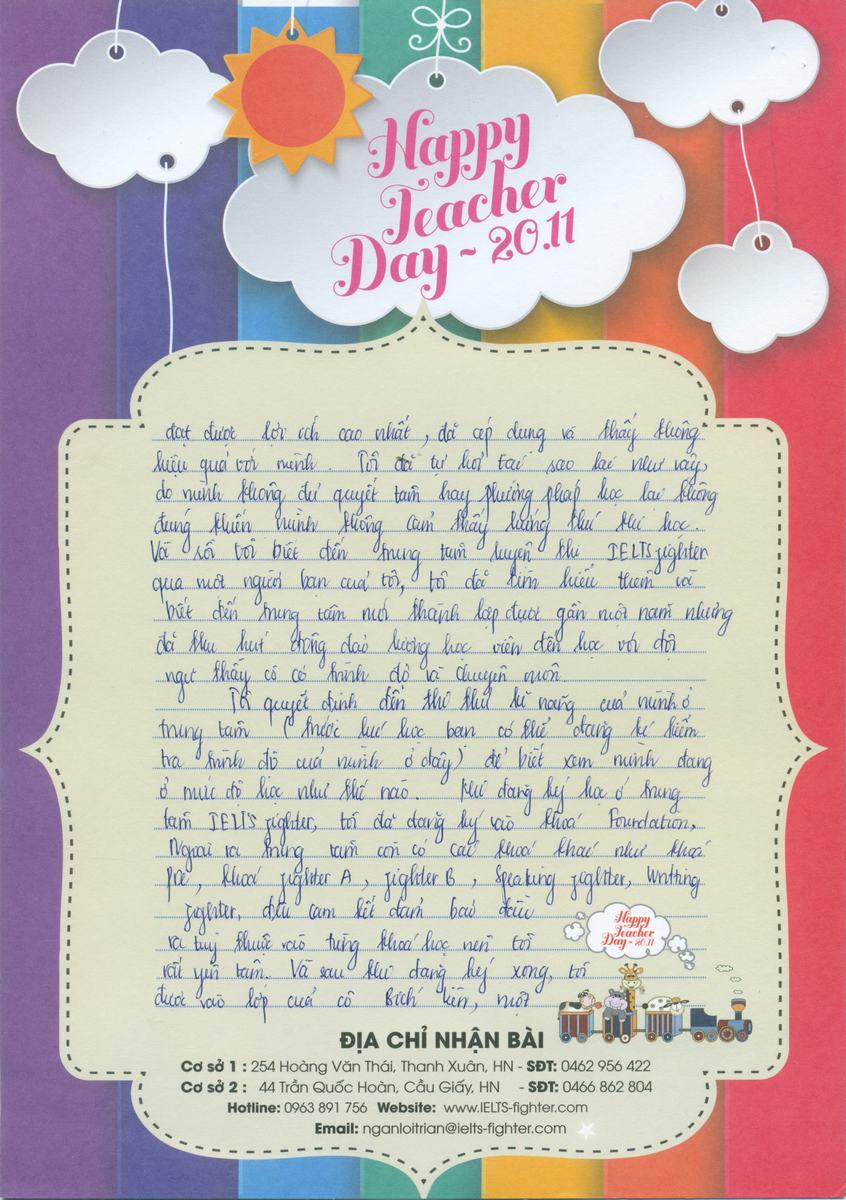 Happy
Teacher
Day ~ 20.11
đạt được lợi ích cao nhất, đã áp dụng và thấy không
hiệu quả với mình. Tôi đã tự hỏi tại sao lại như vậy,
do mình không đủ quyết tâm hay phương pháp học lại không
đúng khiến mình không cảm thấy hứng thú khi học.
Và rồi tôi biết đến trung tâm luyện thi IELTS fighter
qua một người bạn của tôi, tôi đã tìm hiểu thêm và
biết đến trung tâm mới thành lập được gần một năm nhưng
đã thu hút đông đảo lượng học viên đến học với đội
ngũ thầy cô có trình độ và chuyên môn.
Tôi quyết định đến thử thử kĩ năng của mình ở
trung tâm (trước lúc học bạn có thể đăng kí kiểm
tra trình độ của mình ở đây) để biết xem mình đang
ở mức độ học như thế nào. Khi đăng ký học ở trung
tâm IELTS fighter, tôi đã đăng ký vào khoá Foundation,
Ngoài ra trung tâm còn có các khoá khác như khoá
pre, khoá fighter A, fighter B, Speaking fighter, Writing
fighter, đều cam kết đảm bảo đầu
ra tuỳ thuộc vào từng khoá học nên tôi
rất yên tâm. Và sau khi đăng ký xong, tôi
được vào lớp của cô Bích Liên, một
Happy
Teacher
Day ~ 20.11
ĐỊA CHỈ NHẬN BÀI
Cơ sở 1 : 254 Hoàng Văn Thái, Thanh Xuân, HN - SĐT: 0462 956 422
Cơ sở 2 : 44 Trần Quốc Hoàn, Cầu Giấy, HN - SĐT: 0466 862 804
Hotline: 0963 891 756 Website: www.IELTS-fighter.com
Email: nganloitrian@ielts-fighter.com